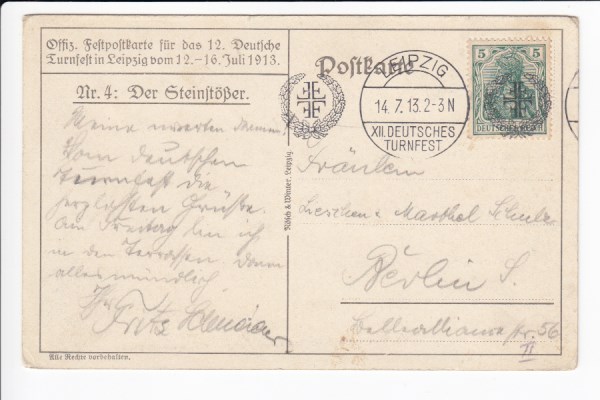 Offiz. Festpostkarte für das 12. Deutsche
Turnfest in Leipzig vom 12.-16. Juli 1913.
Nr. 4: Der Steinstößer.
Meine
Vom Deutschen
Turnfest die
herzlichsten Grüße.
Am Freitag bin ich
in den Terrassen. Dann
alles mündlich.
Ihr
Fritz
Alle Rechte vorbehalten.
Postkarte
LEIPZIG
14.7.13.2-3N
XII. DEUTSCHES
TURNFEST
5
5
DEUTSCHES REICH
Fräulein
Marthel Schulz
Berlin S.
Bellealliancestr. 56
II